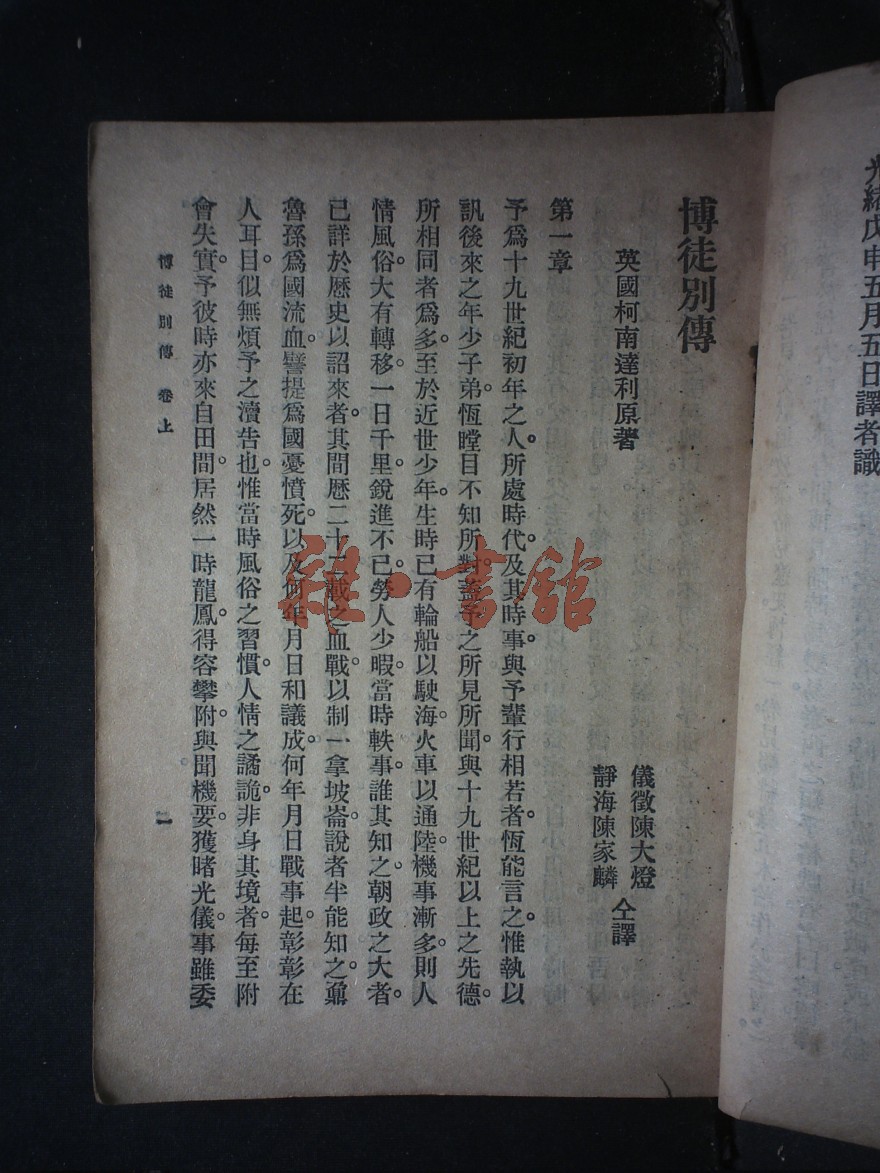 光緒戊申五月五日譯者識
博徒別傳
英國柯南達利原著
儀徵陳大燈
靜海陳家麟
仝譯
第一章
予爲十九世紀初年之人。所處時代。及其時事。與予輩行相若者。恆能言之。惟執以
訊後來之年少子弟。恆瞠目不知所對。蓋予之所見所聞。與十九世紀以上之先德。
所相同者爲多。至於近世少年。生時已有輪船以駛海。火車以通陸。機事漸多。則人
情風俗。大有轉移。一日千里。銳進不已。勞人少暇。當時軼事。誰其知之。朝政之大者。
已詳於歷史。以詔來者。其間歷二十二載之血戰。以制一拿坡崙。說者半能知之。鼐
魯孫爲國流血。譬提爲國憂憤死。以及何年月日和議成。何年月日戰事起。彰彰在
人耳目。似無煩予之瀆告也。惟當時風俗之習慣。人情之譎詭。非身其境者。每至附
會失實。予彼時亦來自田間。居然一時龍鳳。得容攀附。與聞機要。獲睹光儀。事雖委
博徒別傳 卷上
一
雜·書館